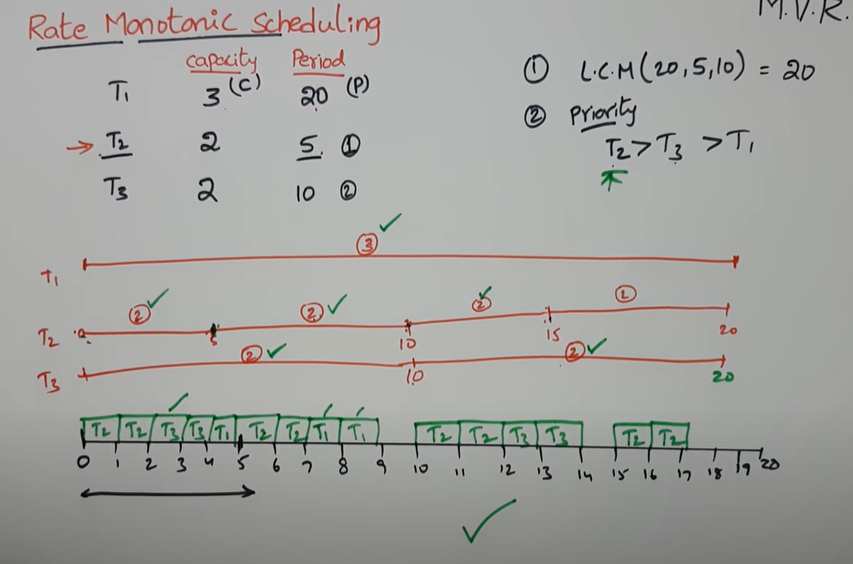 M.V.R.
Rate Monotonic Scheduling
capacity Period
(C) (P)
T1 3 20
→ T2 2 5 ①
T3 2 10 ②
① L.C.M(20,5,10) = 20
② Priority
T2 > T3 > T1
③ ✓
T1
② ✓ ② ✓ ② ✓ ②
T2 0 5 10 15 20
② ✓ ② ✓
T3 10 20
T2 T2 T3 T3 T1 T2 T2 T1 T1 T2 T2 T3 T3 T2 T2
0 1 2 3 4 5 6 7 8 9 10 11 12 13 14 15 16 17 18 19 20